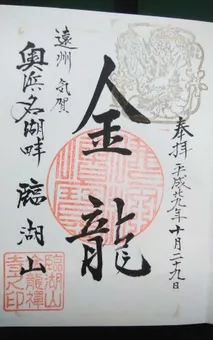 奉拝 平成廿九年十月二十九日
金龍
遠州 気賀
奥浜名湖畔 臨湖山
臨湖山
龍禅
寺之印